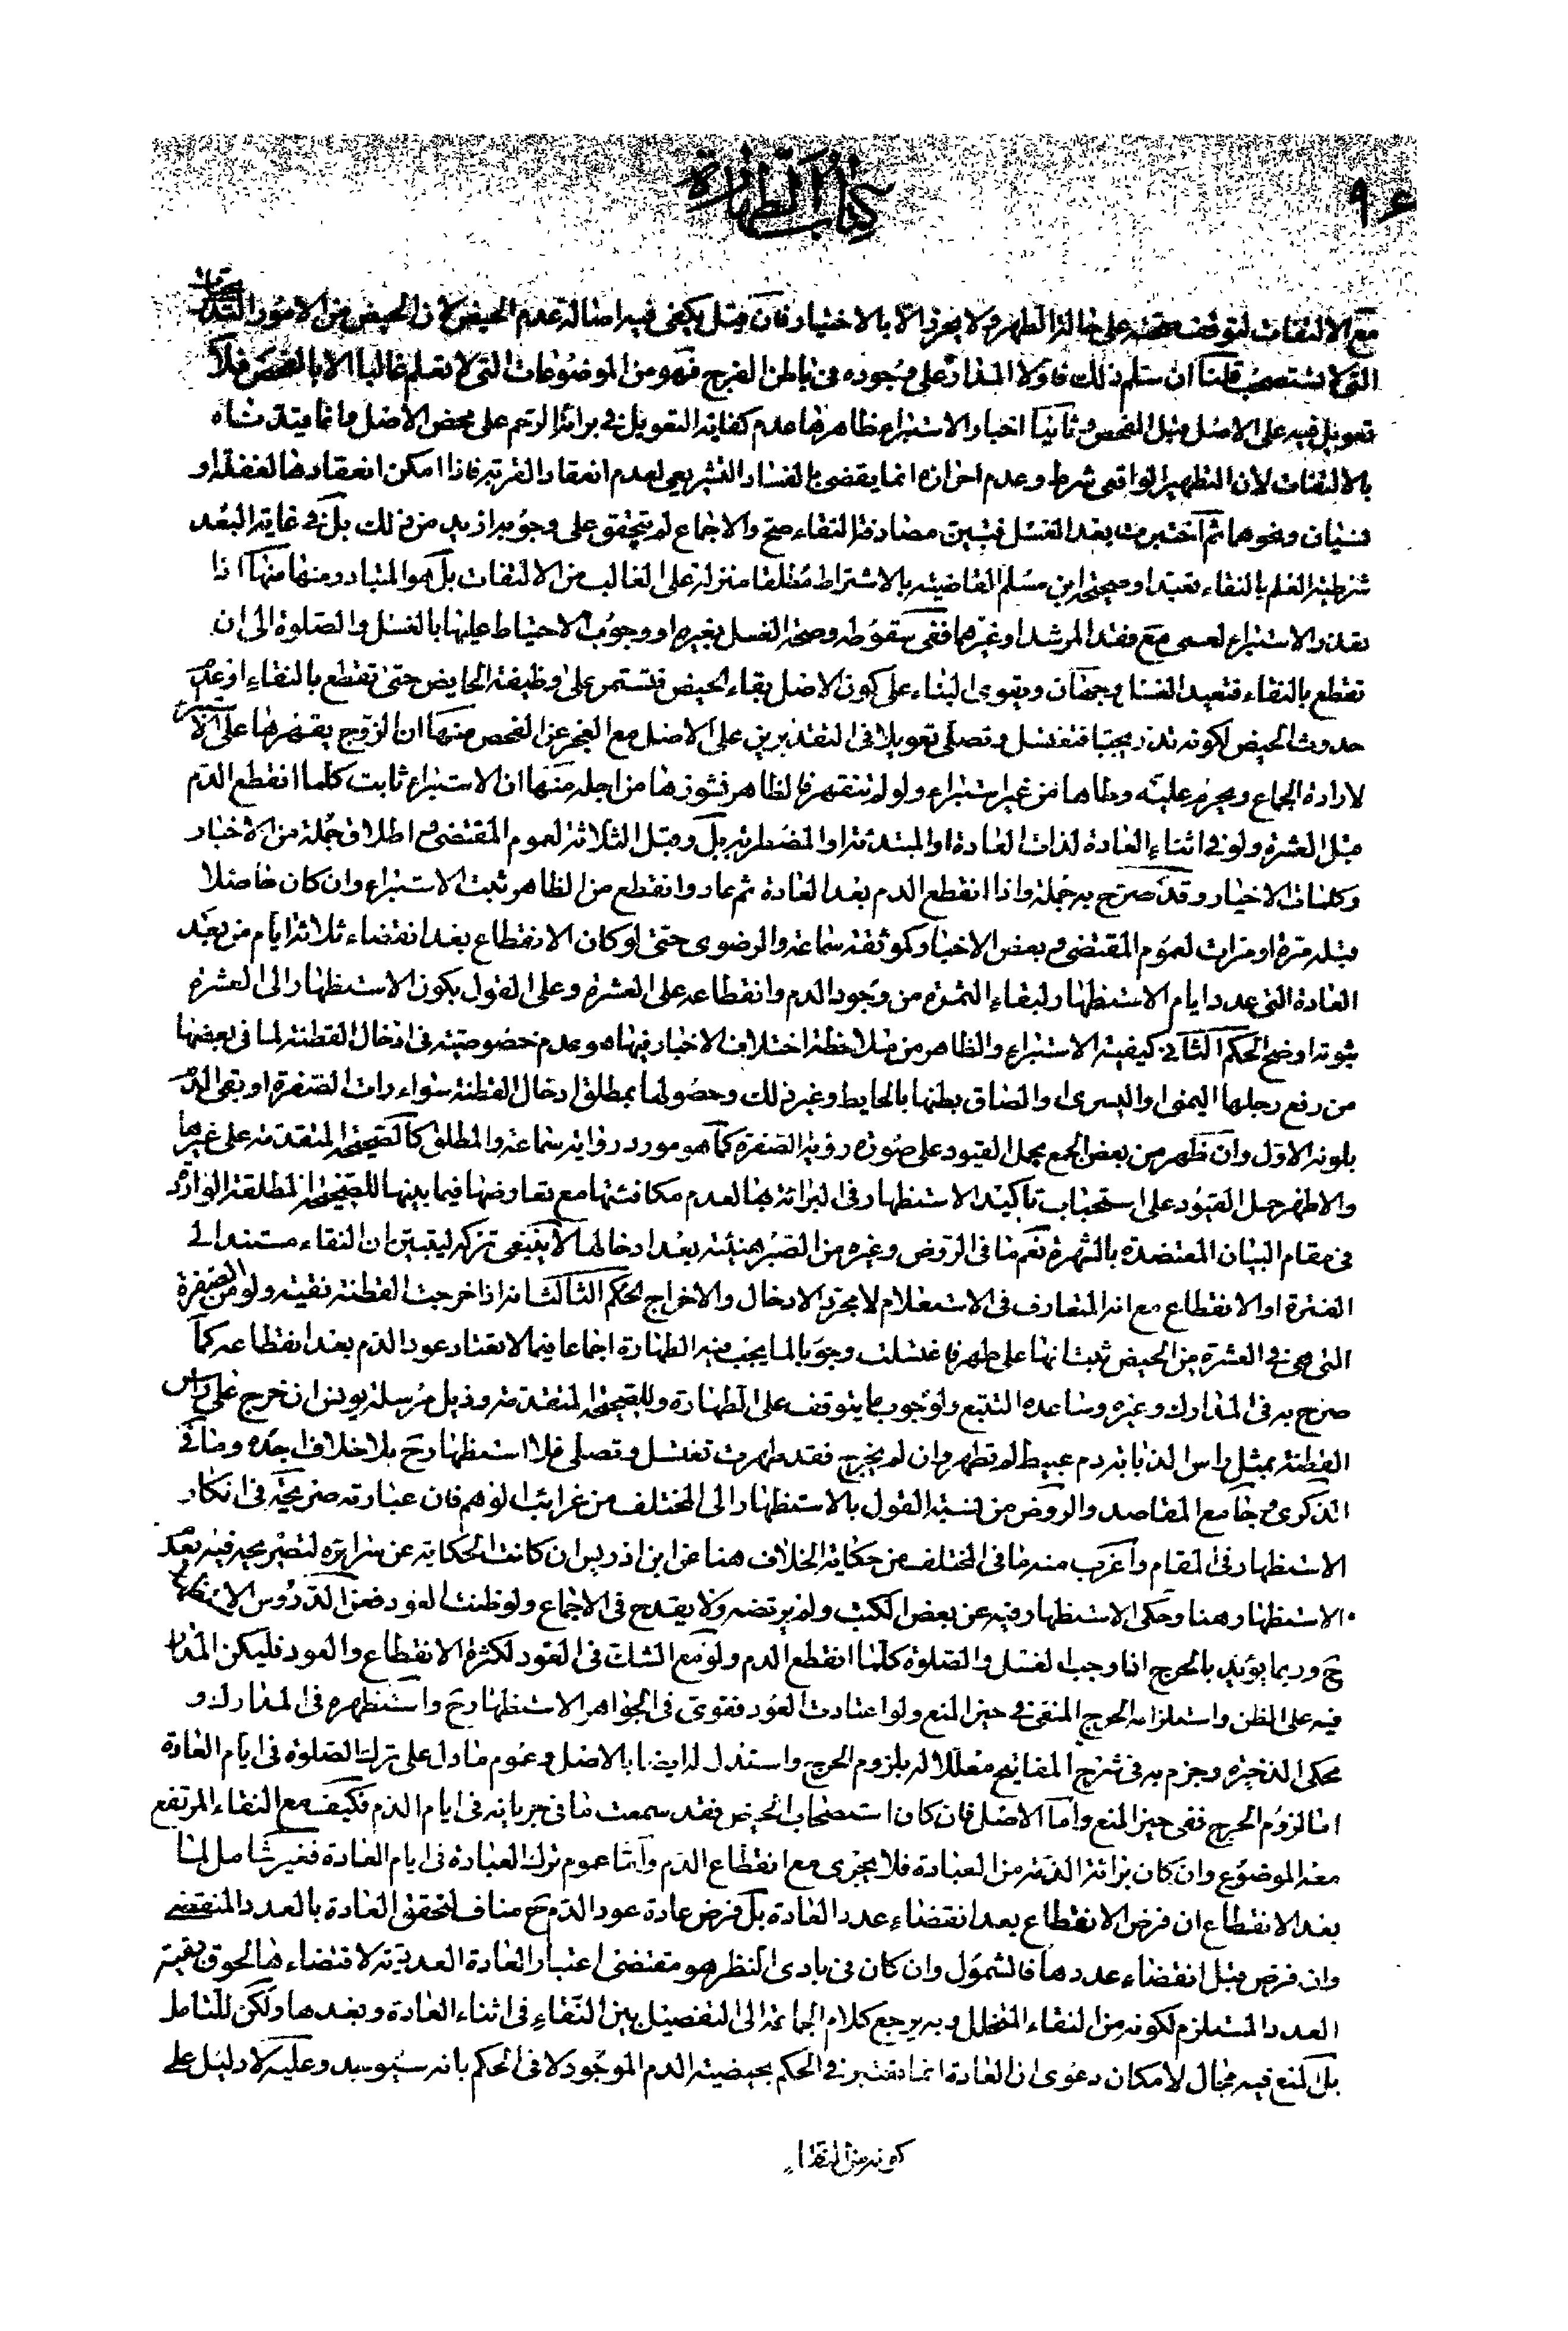 ٩٤
كتاب الطهارة
مع الالتفات لتوقف صحته على حالة الطهر ولا يحرز الا بالاختيار فان قيل يكفى فيه اصالة عدم الحيض لان الحيض من الامور التدريجية
التى لا تستصحب قلنا ان سلم ذلك فاولا المدار على وجوده فى باطن الفرج فهو من الموضوعات التى لا تعلم غالبا الا بالفحص فلا
تعويل فيه على الاصل قبل الفحص وثانيا اخبار الاستبراء ظاهرها عدم كفاية التعويل فى برائة الرحم على محض الاصل وانما قيدناه
بالالتفات لان التطهير الواقعى شرط وعدم احرازه انما يقضى بالفساد التشريعى لعدم انعقاد القربة فاذا امكن انعقادها لغفلة او
نسيان ونحوهما ثم اختبرت بعد الغسل فتبين مصادفة النقاء صح والاجماع لم يتحقق على وجوبه ازيد من ذلك بل فى غاية البعد
شرطية العلم بالنقاء تعبدا وصحيحة ابن مسلم القاضية بالاشتراط مطلقا منزلة على الغالب من الالتفات بل هو المتبادر منها ومنها اذا
تعذر الاستبراء لعمى مع فقد المرشد او غيرهما ففى سقوطه وصحة الغسل بغيره او وجوب الاحتياط عليها بالغسل والصلوة الى ان
تقطع بالنقاء فتعيد الغسل وجهان ويقوى البناء على كون الاصل بقاء الحيض فتستمر على وظيفة الحايض حتى تقطع بالنقاء او عدم
حدوث الحيض لكونه تدريجيا فتغتسل وتصلى تعويلا فى التقديرين على الاصل مع العجز عن الفحص منها ان الزوج يقهرها على الاستبراء
لارادة الجماع ويحرم عليه وطاها من غير استبراء ولو لم تنقهر فالظاهر نشوزها من اجله منها ان الاستبراء ثابت كلما انقطع الدم
قبل العشرة ولو فى اثناء العادة لذات العادة او المبتدئة او المضطربة بل وقبل الثلاثة لعموم المقتضى واطلاق جملة من الاخبار
وكلمات الاخيار وقد صرح به جملة واذا انقطع الدم بعد العادة ثم عاد وانقطع من الظاهر ثبت الاستبراء وان كان حاصلا
قبله مرة او مرات لعموم المقتضى وبعض الاخبار كموثقة سماعة والرضوى حتى لو كان الانقطاع بعد انقضاء ثلاثة ايام من بعد
العادة التى عدد ايام الاستظهار لبقاء الثمرة من وجود الدم وانقطاعه على العشرة وعلى القول بكون الاستظهار الى العشرة
ثبوته اوضح الحكم الثانى كيفية الاستبراء والظاهر من ملاحظة اختلاف الاخبار فيها هو عدم خصوصية فى ادخال القطنة لما فى بعضها
من رفع رجلها اليمنى او اليسرى والصاق بطنها بالحايط وغير ذلك وحصولها بمطلق ادخال القطنة سواء رات الصفرة او بقى الدم
بلونه الاول وان ظهر من بعض الجمع بحمل القيود على صورة رؤية الصفرة كما هو مورد رواية سماعة والمطلق كالصحيحة المتقدمة على غيرها
والاظهر حمل القيود على استحباب تاكيد الاستظهار فى البرائة بها لعدم مكافئتها مع تعارضها فيما بينها للصحيحة المطلقة الواردة
فى مقام البيان المعتضدة بالشهرة نعم ما فى الروض وغيره من الصبر هنيئة بعد ادخالها لا ينبغى تركه ليتبين ان النقاء مستند الى
الفترة او الانقطاع مع انه المتعارف فى الاستعلام لا مجرد الادخال والاخراج الحكم الثالث انه اذا خرجت القطنة نقية ولو من الصفرة
التى هى فى العشرة من الحيض ثبت انها على طهر فاغتسلت وجوبا لما يجب فيه الطهارة اجماعا فيما لا تعتاد عود الدم بعد انقطاعه كما
صرح به فى المدارك وغيره وساعده التتبع ولوجوب ما يتوقف على الطهارة وللصحيحة المتقدمة وذيل مرسلة يونس ان خرج على راس
القطنة بمثل راس الذبابة دم عبيط لم تطهر وان لم يخرج فقد طهرت تغتسل وتصلى فلا استظهار ح بلا خلاف اجده وما فى
الذكرى وجامع المقاصد والروض من نسبة القول بالاستظهار الى المختلف من غرائب الوهم فان عبارته صريحة فى انكار
الاستظهار فى المقام واغرب منه ما فى المختلف من حكاية الخلاف هنا عن ابن ادريس ان كانت الحكاية عن سرائره لتصريحه فيه بعدم
الاستظهار هنا وحكى الاستظهار فيه عن بعض الكتب ولم يرتضه ولا يقدح فى الاجماع ولو ظنت العود فعن الدروس الاستظهار
ح وربما يؤيد بالحرج اذا وجب الغسل والصلوة كلما انقطع الدم ولو مع الشك فى العود لكثرة الانقطاع والعود فليكن المدار
فيه على الظن واستلزامه الحرج المنفى فى حيز المنع ولو اعتادت العود فقوى فى الجواهر الاستظهار ح واستظهره فى المدارك و
محكى الذخيرة وجزم به فى شرح المفاتيح معللا له بلزوم الحرج واستدل له ايضا بالاصل وعموم ما دل على ترك الصلوة فى ايام العادة
اما لزوم الحرج ففى حيز المنع واما الاصل فان كان استصحاب الحيض فقد سمعت ما فى جريانه فى ايام الدم فكيف مع النقاء المرتفع
معه الموضوع وان كان برائة الذمة من العبادة فلا يجرى مع انقطاع الدم واما عموم ترك العبادة فى ايام العادة فغير شامل لما
بعد الانقطاع ان فرض الانقطاع بعد انقضاء عدد العادة بل فرض عادة عود الدم ح مناف لتحقق العادة بالعدد المنقضى
وان فرض قبل انقضاء عددها فالشمول وان كان فى بادى النظر هو مقتضى اعتبار العادة العددية لاقتضاءها لحوق بقية
العدد المستلزم لكونه من النقاء المتخلل وبه يرجع كلام الجماعة الى التفصيل بين النقاء فى اثناء العادة وبعدها ولكن للتامل
بل المنع فيه مجال لامكان دعوى ان العادة انما تعتبر فى الحكم بحيضية الدم الموجود لا فى الحكم بانه سيوجد وعليه لا دليل على
كونه من النقاء